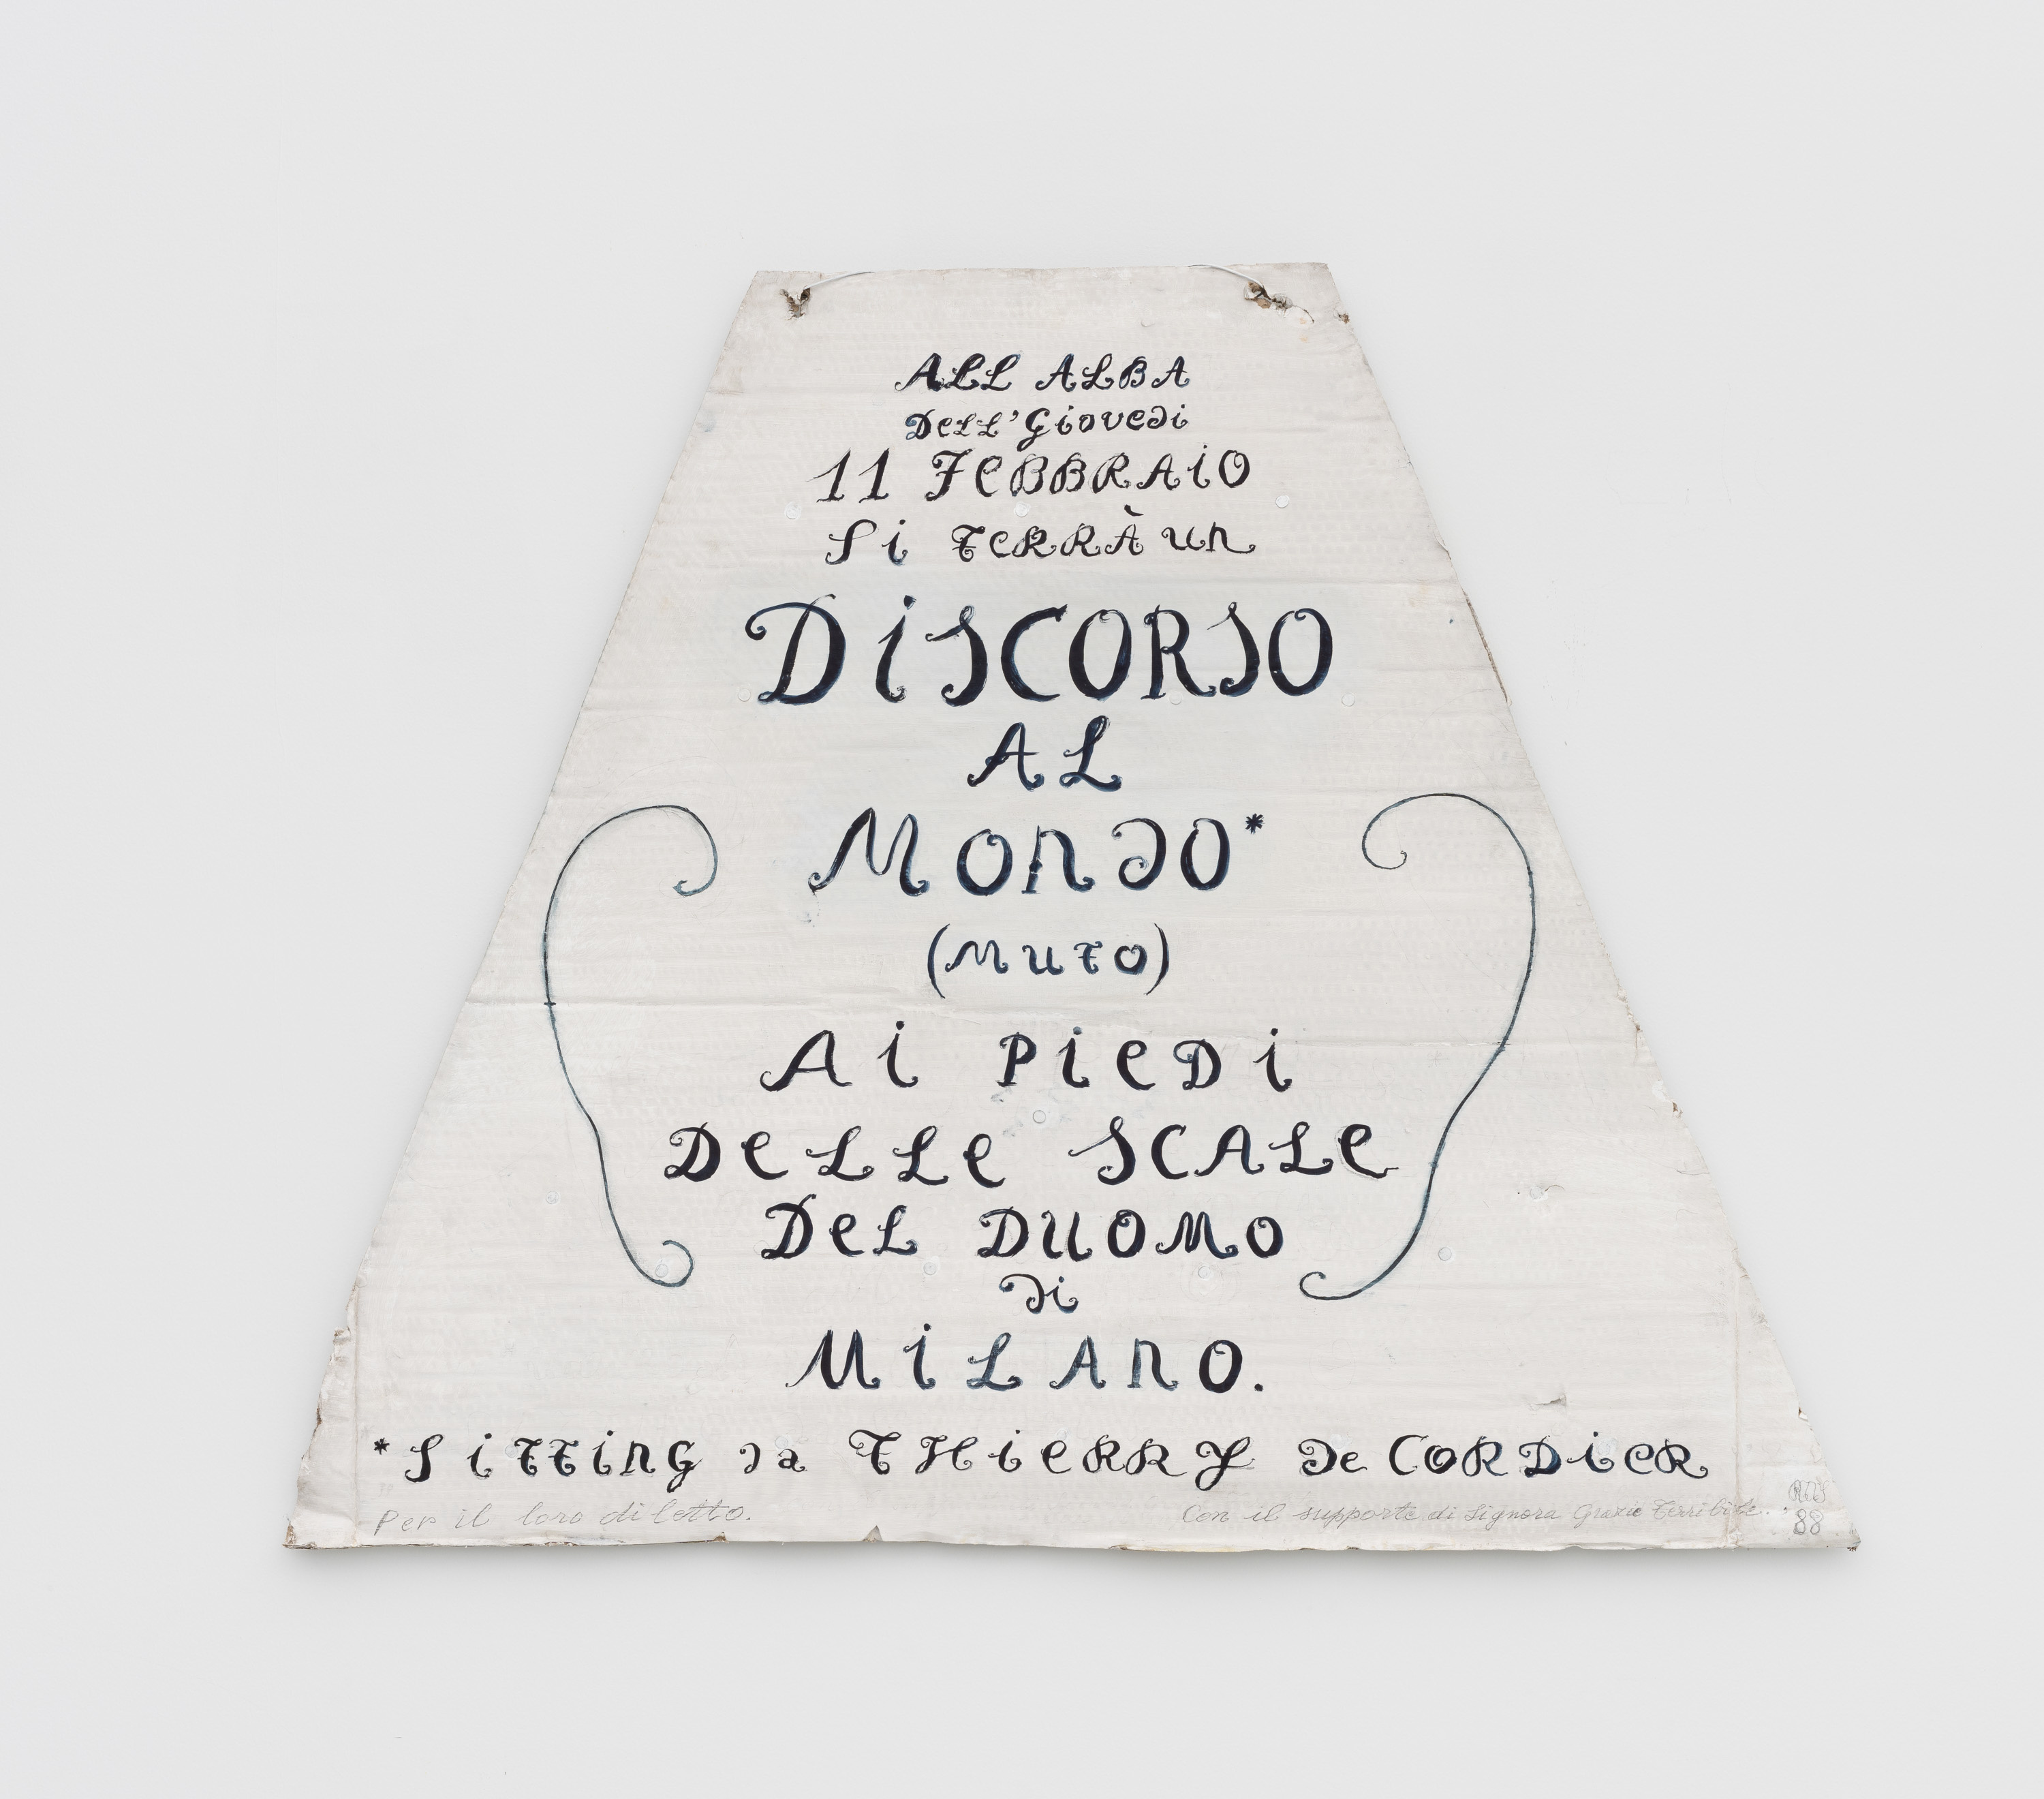 ALL ALBA
DELL' Giovedi
11 FEBBRAiO
Si TERRÀ un
DiSCORSO
AL
MONDO*
(MUTO)
Ai PiEDi
DELLE SCALE
DEL DUOMO
di
MiLANO.
*SiTTiNG da THiERRY De CORDiER
Per il loro di letto.
Con il supporte di Signora Grazie Terribile..
88